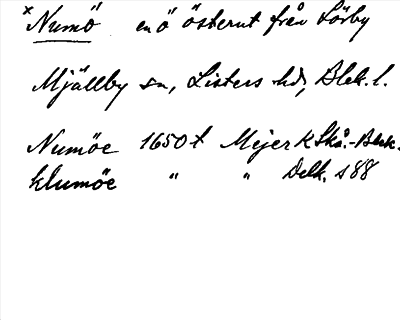 x Numö en ö österut från Sörby
Mjällby sn, Listers hd, Blek. l.
Numöe 1650 t Mejer K Skå.-Blek.
klumöe " " Delk. s 88